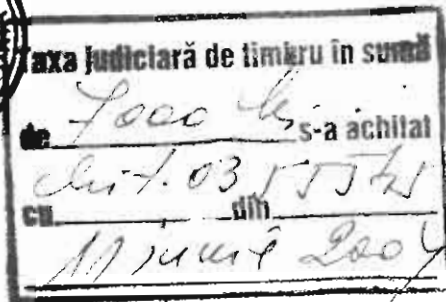 Taxa judiciară de timbru în sumă
de lei s-a achitat
chit. 03
cu din
11 iunie